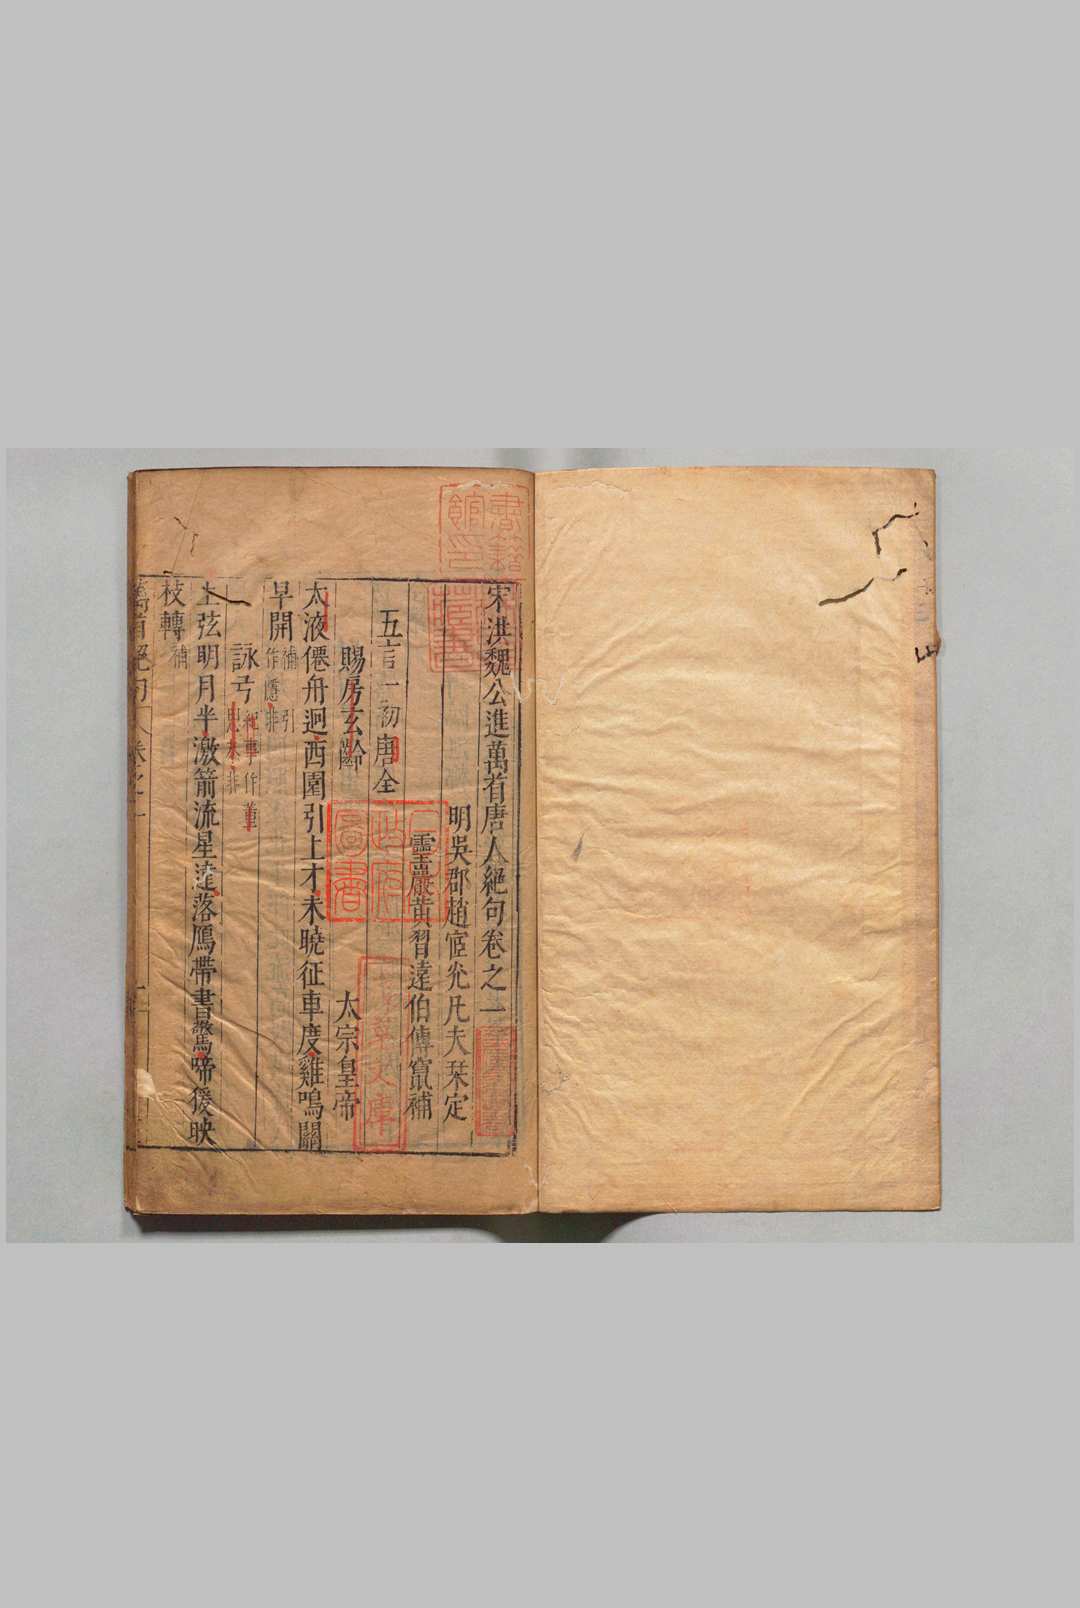 宋洪魏公進萬首唐人絕句卷之一
明吳郡趙宧光凡夫栞定
靈巖黃習遠伯傳竄補
五言一初唐全
賜房玄齡
太宗皇帝
太液僊舟迥西園引上才未曉征車度雞鳴關
早開補引
作隱非
詠弓紀事作董
思恭非
上弦明月半激箭流星遠落鴈帶書驚啼猨映
枝轉補